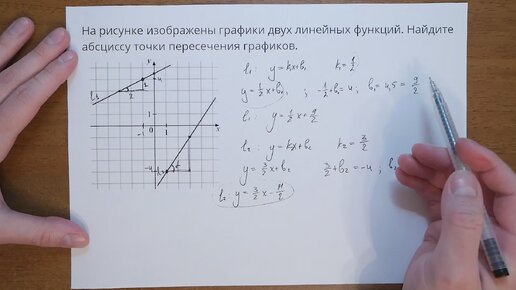 На рисунке изображены графики двух линейных функций. Найдите
абсциссу точки пересечения графиков.
l₁: y=k₁x+b₁ k₁=1/2
y=1/2x+b₁ ; -1/2+b₁=4 ; b₁=4,5=9/2
l₁: y=1/2x+9/2
l₂: y=kx+b₂ k₂=3/2
y=3/2x+b₂ 3/2+b₂=-4 ; b₂
l₂ y=3/2x-11/2
4
-1
1
-4
x